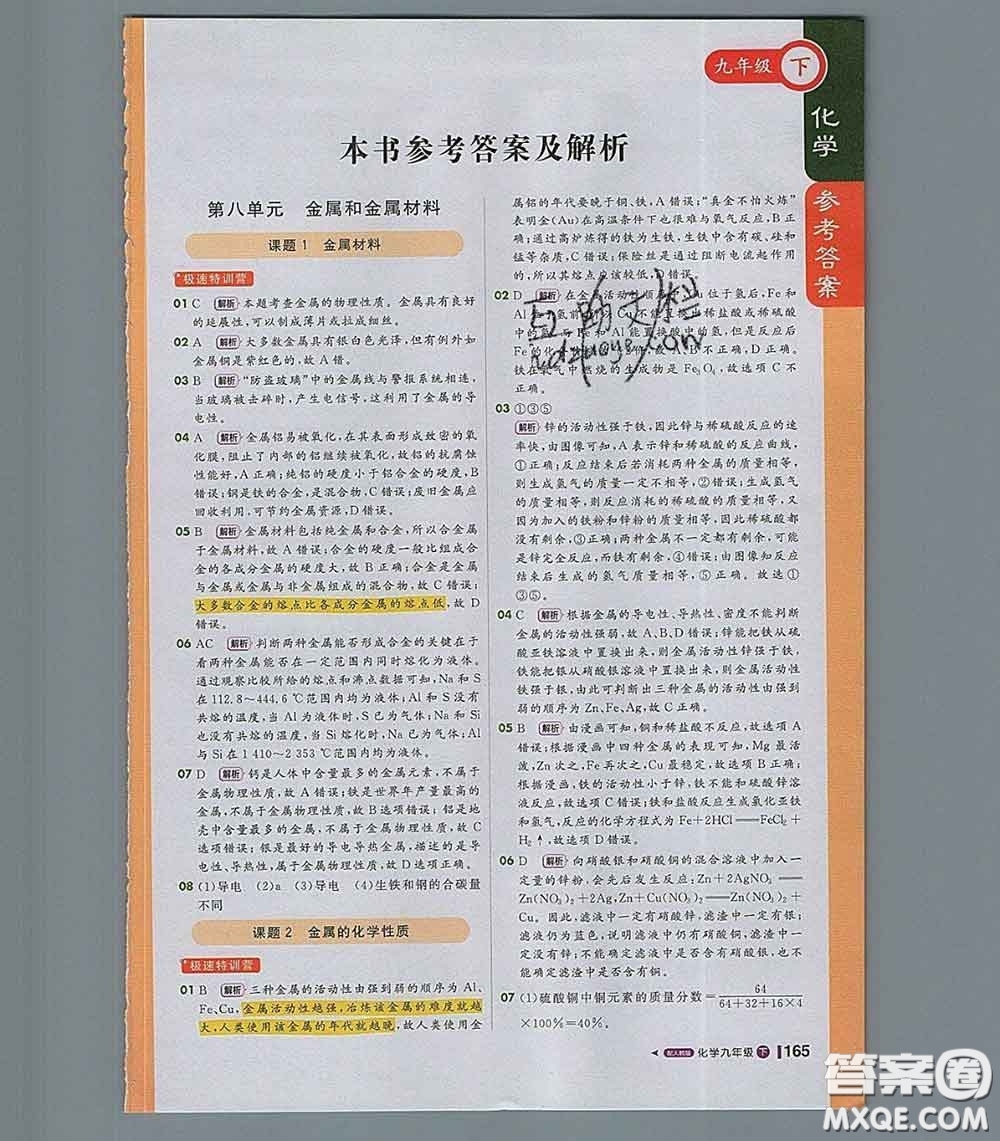 九年级 下
化学
参考答案
本书参考答案及解析
第八单元 金属和金属材料
课题1 金属材料
极速特训营
01 C 解析 本题考查金属的物理性质。金属具有良好
的延展性,可以制成薄片或拉成细丝。
02 A 解析 大多数金属具有银白色光泽,但有例外如
金属铜是紫红色的,故A错。
03 B 解析 “防盗玻璃”中的金属线与警报系统相连,
当玻璃被击碎时,产生电信号,这利用了金属的导
电性。
04 A 解析 金属铝易被氧化,在其表面形成致密的氧
化膜,阻止了内部的铝继续被氧化,故铝的抗腐蚀
性能好,A正确;纯铝的硬度小于铝合金的硬度,B
错误;钢是铁的合金,是混合物,C错误;废旧金属应
回收利用,可节约金属资源,D错误。
05 B 解析 金属材料包括纯金属和合金,所以合金属
于金属材料,故A错误;合金的硬度一般比组成合
金的各成分金属的硬度大,故B正确;合金是金属
与金属或金属与非金属组成的混合物,故C错误;
大多数合金的熔点比各成分金属的熔点低,故D
错误。
06 AC 解析 判断两种金属能否形成合金的关键在于
看两种金属能否在一定范围内同时熔化为液体。
通过观察比较所给的熔点和沸点数据可知,Na和S
在112.8~444.6℃范围内均为液体,Al和S没有
共熔的温度,当Al为液体时,S已为气体;Na和Si
也没有共熔的温度,当Si熔化时,Na已为气体;Al
与Si在1 410~2 353 ℃范围内均为液体。
07 D 解析 钙是人体中含量最多的金属元素,不属于
金属物理性质,故A错误;铁是世界年产量最高的
金属,不属于金属物理性质,故B选项错误;铝是地
壳中含量最多的金属,不属于金属物理性质,故C
选项错误;银是最好的导电导热金属,描述的是导
电性、导热性,属于金属物理性质,故D选项正确。
08 (1)导电 (2)a (3)导电 (4)生铁和钢的含碳量
不同
课题2 金属的化学性质
极速特训营
01 B 解析 三种金属的活动性由强到弱的顺序为Al、
Fe、Cu,金属活动性越强,冶炼该金属的难度就越
大,人类使用该金属的年代就越晚,故人类使用金
属铝的年代要晚于铜、铁,A错误;“真金不怕火炼”
表明金(Au)在高温条件下也很难与氧气反应,B正
确;通过高炉炼得的铁为生铁,生铁中含有碳、硅和
锰等杂质,C错误;保险丝是通过阻断电流而起作用
的,所以其熔点应该较低,D错误。
02 D 解析 在金属活动性顺
位于氢后,Fe和
Al
能置换酸中的氢,但是反应后
Fe的化
不正确,D正确。
铁在氧气中燃烧的生成物是Fe3O4,故选项C不
正确。
03 ①③⑤
解析 锌的活动性强于铁,因此锌与稀硫酸反应的速
率快,由图像可知,A表示锌和稀硫酸的反应曲线,
①正确;反应结束后若消耗两种金属的质量相等,
则生成氢气的质量一定不相等,②错误;生成氢气
的质量相等,则反应消耗的稀硫酸的质量相等,又
因为加入的铁粉和锌粉的质量相等,因此稀硫酸都
没有剩余,③正确;两种金属不一定都有剩余,可能
是锌完全反应,而铁有剩余,④错误;由图像知反应
结束后生成的氢气质量相等,⑤正确。故选①
③⑤。
04 C 解析 根据金属的导电性、导热性、密度不能判断
金属的活动性强弱,故A、B、D错误;锌能把铁从硫
酸亚铁溶液中置换出来,则锌的活动性强于铁,
铁能把银从硝酸银溶液中置换出来,则金属活动性
铁强于银,由此可判断出三种金属的活动性由强到
弱的顺序为Zn、Fe、Ag,故C正确。
05 B 解析 由漫画可知,铜和稀盐酸不反应,故选项A
错误;根据漫画中四种金属的表现可知,Mg最活
泼,Zn次之,Fe再次之,Cu最稳定,故选项B正确;
根据漫画,铁的活动性小于锌,铁不能和硫酸锌溶
液反应,故选项C错误;铁和盐酸反应生成氯化亚铁
和氢气,反应的化学方程式为Fe+2HCl══FeCl2+
H2↑,故选项D错误。
06 D 解析 向硝酸银和硝酸铜的混合溶液中加入一
定量的锌粉,会先后发生反应:Zn+2AgNO3══
Zn(NO3)2+2Ag,Zn+Cu(NO3)2══Zn(NO3)2+
Cu。因此,滤液中一定有硝酸锌,滤渣中一定有银;
滤液仍为蓝色,说明滤液中一定含有硝酸铜,但是
不能确定滤液中是否含有硝酸银,同时也不能
确定滤渣中是否含有铜。
07 (1)硫酸铜中铜元素的质量分数=64/(64+32+16×4)
×100%=40%。
配人教版 化学九年级 下 165
答案圈
MXQE.COM